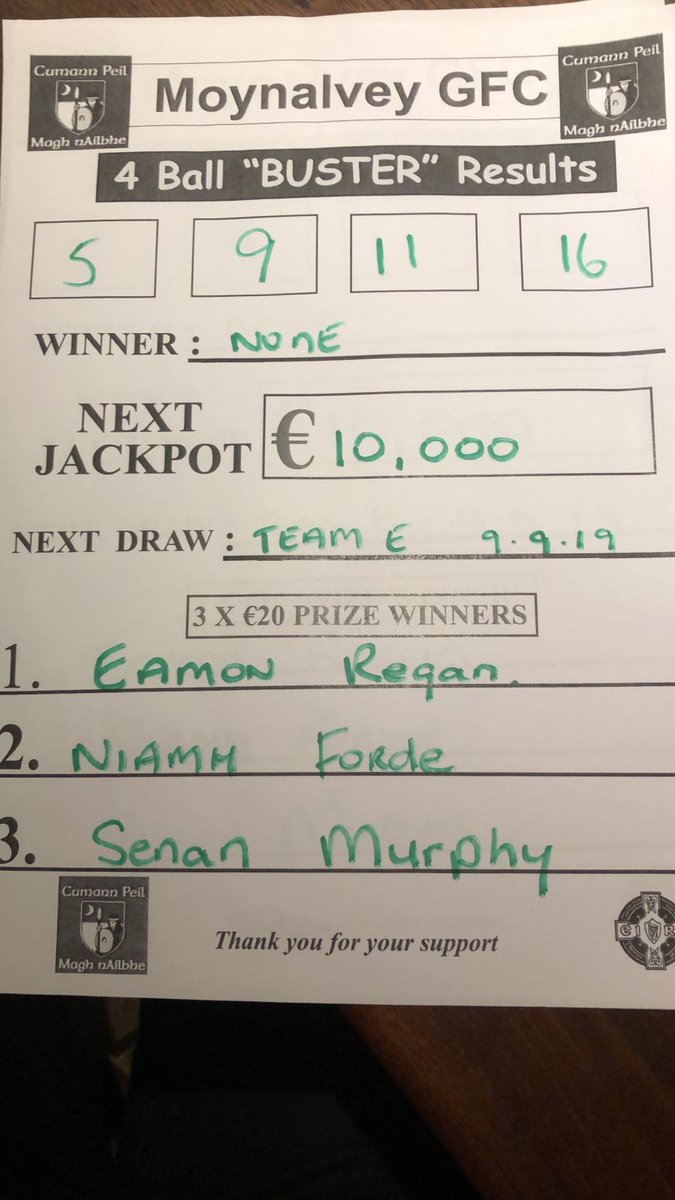 Cumann Peil
Magh nAilbhe
Moynalvey GFC
Cumann Peil
Magh nAilbhe
4 Ball “BUSTER” Results
5 9 11 16
WINNER : NONE
NEXT JACKPOT € 10,000
NEXT DRAW : TEAM E 9.9.19
3 X €20 PRIZE WINNERS
1. EAMON Regan.
2. NIAMH Forde
3. Senan Murphy
Cumann Peil
Magh nAilbhe
Thank you for your support